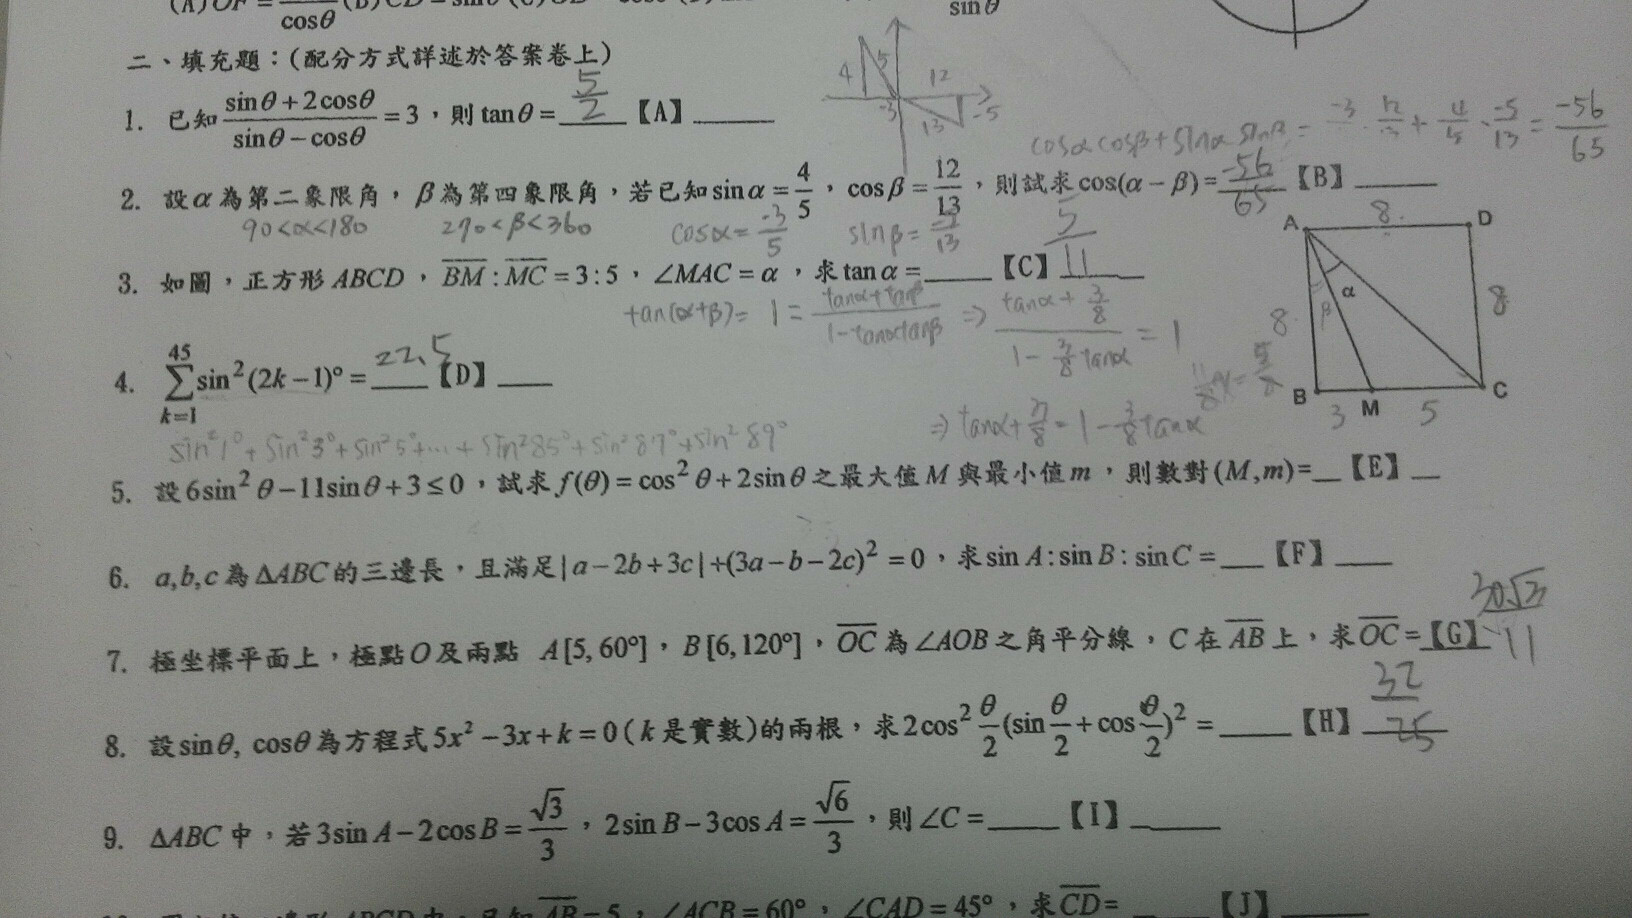 cosθ
sinθ
二、填充題：(配分方式詳述於答案卷上)
1. 已知 (sinθ+2cosθ)/(sinθ−cosθ) =3，則 tanθ= 5/2 【A】
4 5 12 -3 13 -5
cosα cosβ + sinα sinβ = -3 · 12/13 + 4/5 · -5/13 = -56/65
2. 設α為第二象限角，β為第四象限角，若已知 sinα=4/5，cosβ=12/13，則試求 cos(α−β)= -56/65 【B】
90<α<180 270<β<360 cosα= -3/5 sinβ=
3. 如圖，正方形 ABCD，BM:MC=3:5，∠MAC=α，求 tanα= 【C】 5/11
tan(α+β)= 1 = (tanα+tanβ)/(1-tanαtanβ) ⇒ (tanα+3/8)/(1-3/8 tanα) = 1
⇒ tanα+3/8 = 1-3/8 tanα
A 8 D
8 β α 8
B 3 M 5 C
4. ∑ k=1 45 sin²(2k−1)°= 22.5 【D】
sin²1°+sin²3°+sin²5°+...+sin²85°+sin²87°+sin²89°
5. 設 6sin²θ−11sinθ+3≤0，試求 f(θ)=cos²θ+2sinθ 之最大值 M 與最小值 m，則數對(M,m)= 【E】
6. a,b,c 為 ΔABC 的三邊長，且滿足|a−2b+3c|+(3a−b−2c)²=0，求 sin A:sin B:sin C= 【F】
7. 極坐標平面上，極點 O 及兩點 A[5,60°]，B[6,120°]，OC 為∠AOB 之角平分線，C 在 AB 上，求 OC=【G】 30√3/11
8. 設 sinθ, cosθ 為方程式 5x²−3x+k=0 (k 是實數)的兩根，求 2cos² θ/2 (sin θ/2 + cos θ/2)² = 【H】 32/25
9. ΔABC 中，若 3sin A−2cos B=√3/3，2sin B−3cos A=√6/3，則∠C= 【I】
∠ACB=60°，∠CAD=45°，求 CD= 【J】